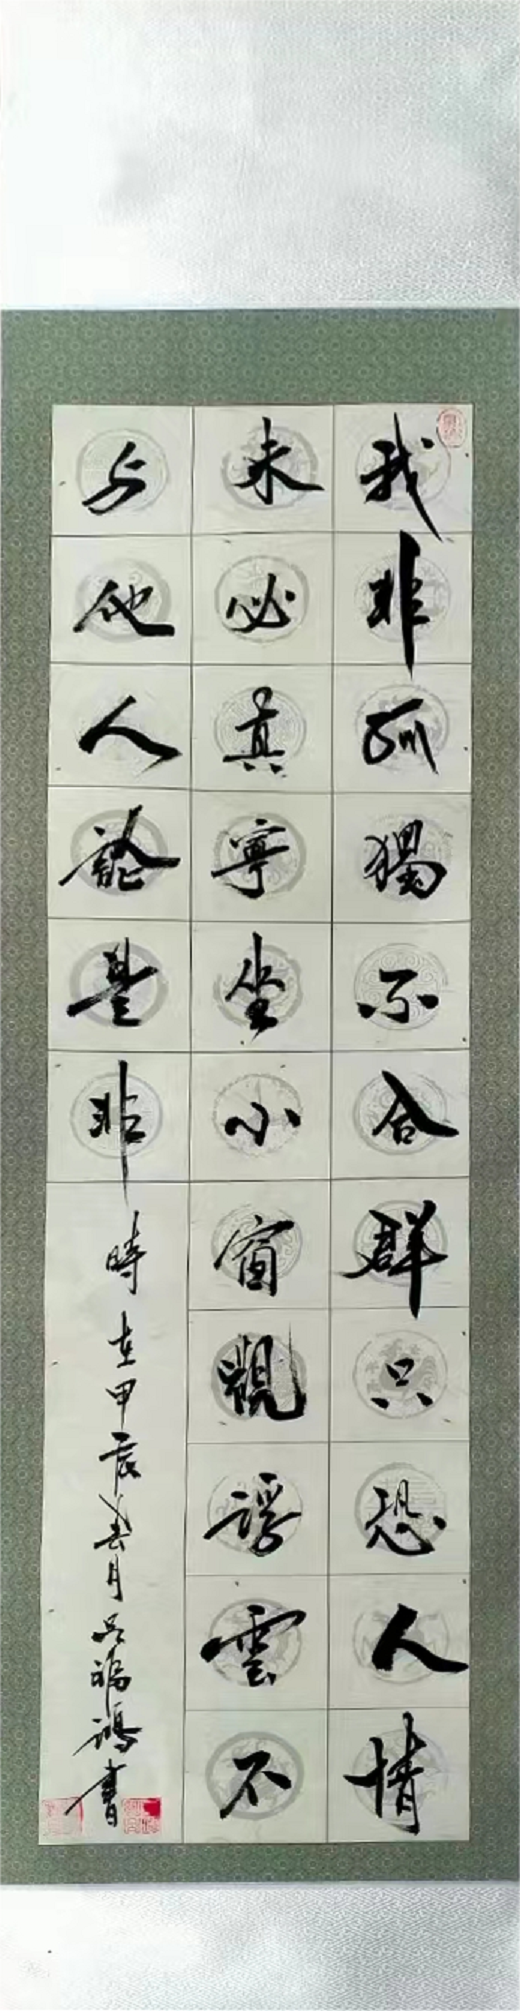 我非孤獨不合群只恐人情
未必真寧坐小窗觀浮雲不
与他人論是非
時在甲辰春月吳鴻書